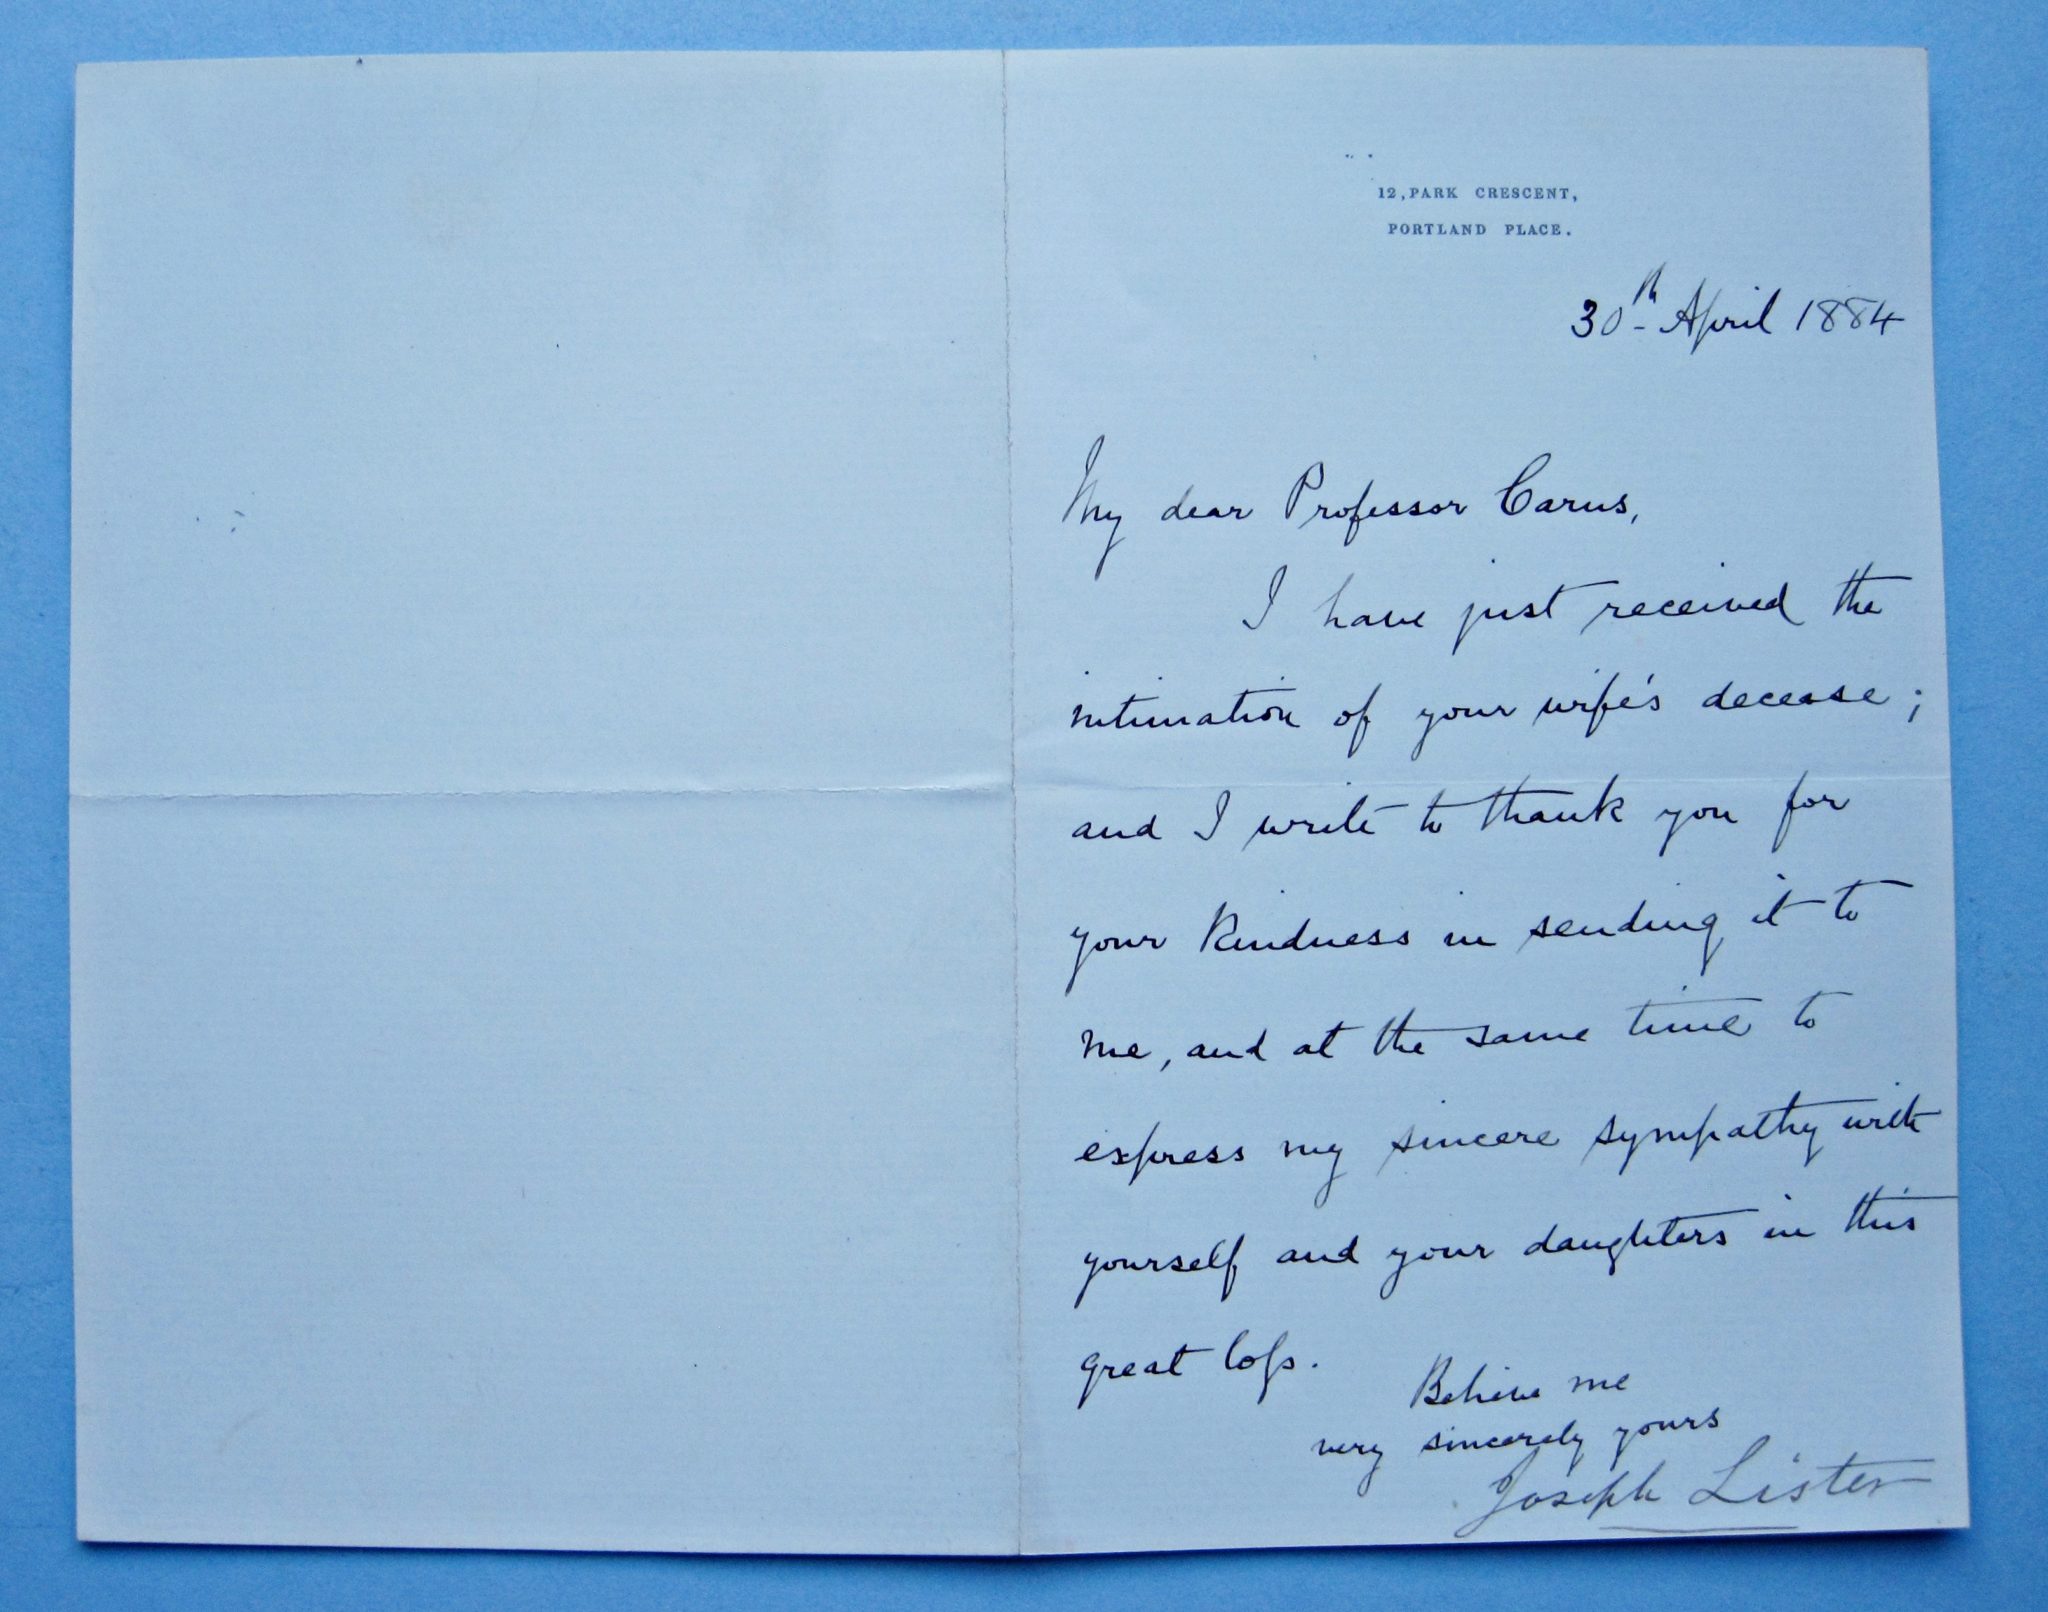 12, PARK CRESCENT,
PORTLAND PLACE.
30th April 1884
My dear Professor Carus,
I have just received the
intimation of your wife's decease;
and I write to thank you for
your kindness in sending it to
me, and at the same time to
express my sincere sympathy with
yourself and your daughters in this
great loſs.
Believe me
very sincerely yours
Joseph Lister